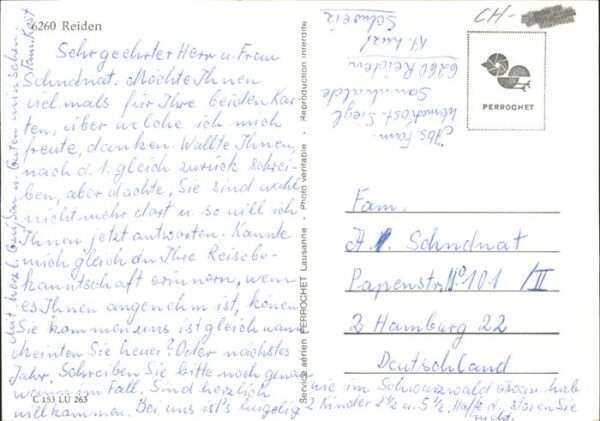 6260 Reiden
Sehr geehrter Herr u. Frau
Schndnat. Möchte Ihnen
vielmals für Ihre beiden Kar-
ten, über welche ich mich
freute, danken. Wollte Ihnen,
nach d. 1. gleich zurück schrei-
ben, aber dachte, Sie sind wohl
nicht mehr dort u. so will ich
Ihnen jetzt antworten. Konnte
mich gleich an Ihre Reisebe-
kanntschaft erinnern, wenn
es Ihnen angenehm ist, könen
Sie kommen uns ist gleich wann
Sie heuer? Oder nächstes
Jahr. Schreiben Sie bitte noch genau
wenn im Fall. Sind herzlich
willkommen. Bei uns ist's hügelig
wie im Schwarzwald
2 Kinder 2½ u. 5½. stören Sie
nicht.
C 153 LU 263
Service aérien PERROCHET Lausanne - Photo véritable - Reproduction interdite
Abs. Fam.
Siegl
Sonnhalde
6260 Reiden
Kt. Luz.
Schweiz
CH-
PERROCHET
Fam.
A. Schndnat
Papenstr. No 101 /II
2 Hamburg 22
Deutschland